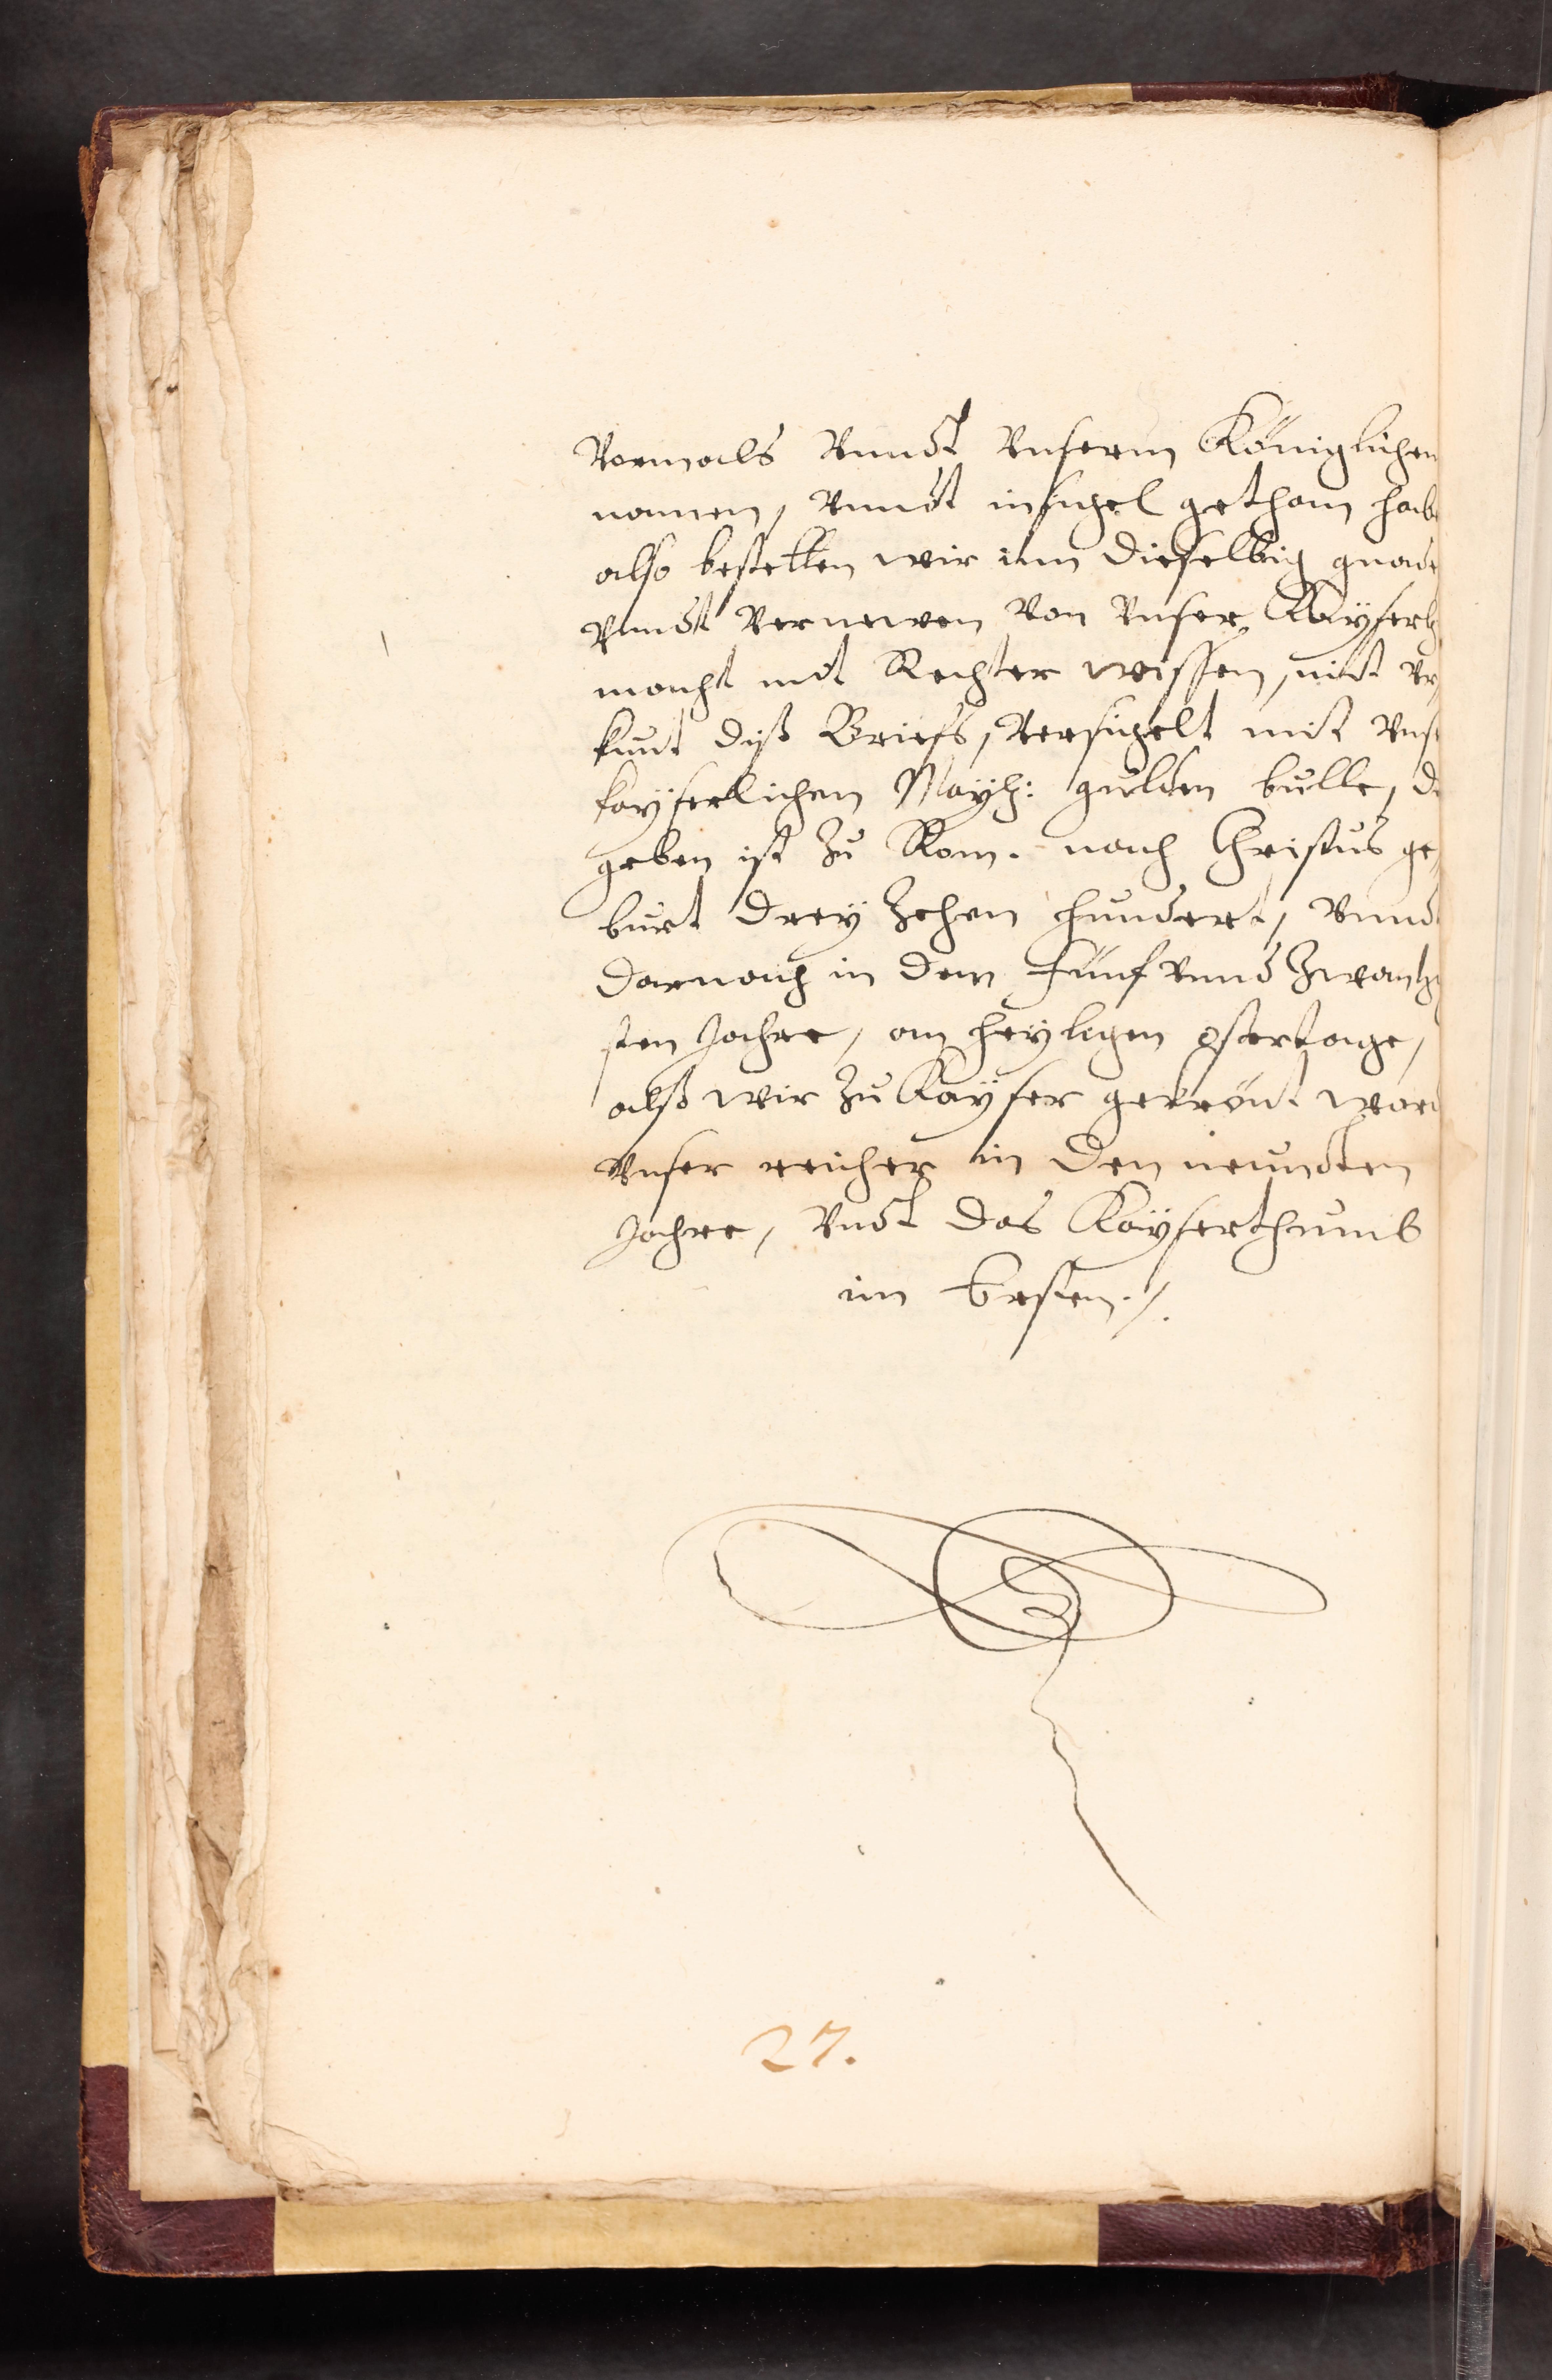 Vormals Vnndt Vnserm Königlichen
namen, Vnndt insigel gethan hab
also bestetten wir inn dieselbig gnad
Vnndt Vernewen Von Vnser Kayserl
macht mit Rechter wissen, mit Vr,
kunt diß Brieffs, Versigelt mit Vns
kayserlichen Mayh: gulden bulle, d
geben ist zu Rom. nach Christus ge,
burt drey zehen hundert, Vnnd
darnach in dem fünf Vnnd zwantzi
sten Jahre, am heyligen ostertage,
alß wir zu Kayser gekrönt word
Vnser reicher in den neundten
Jahre, Vndt das Kayserthumb
im Ersten./.
27.